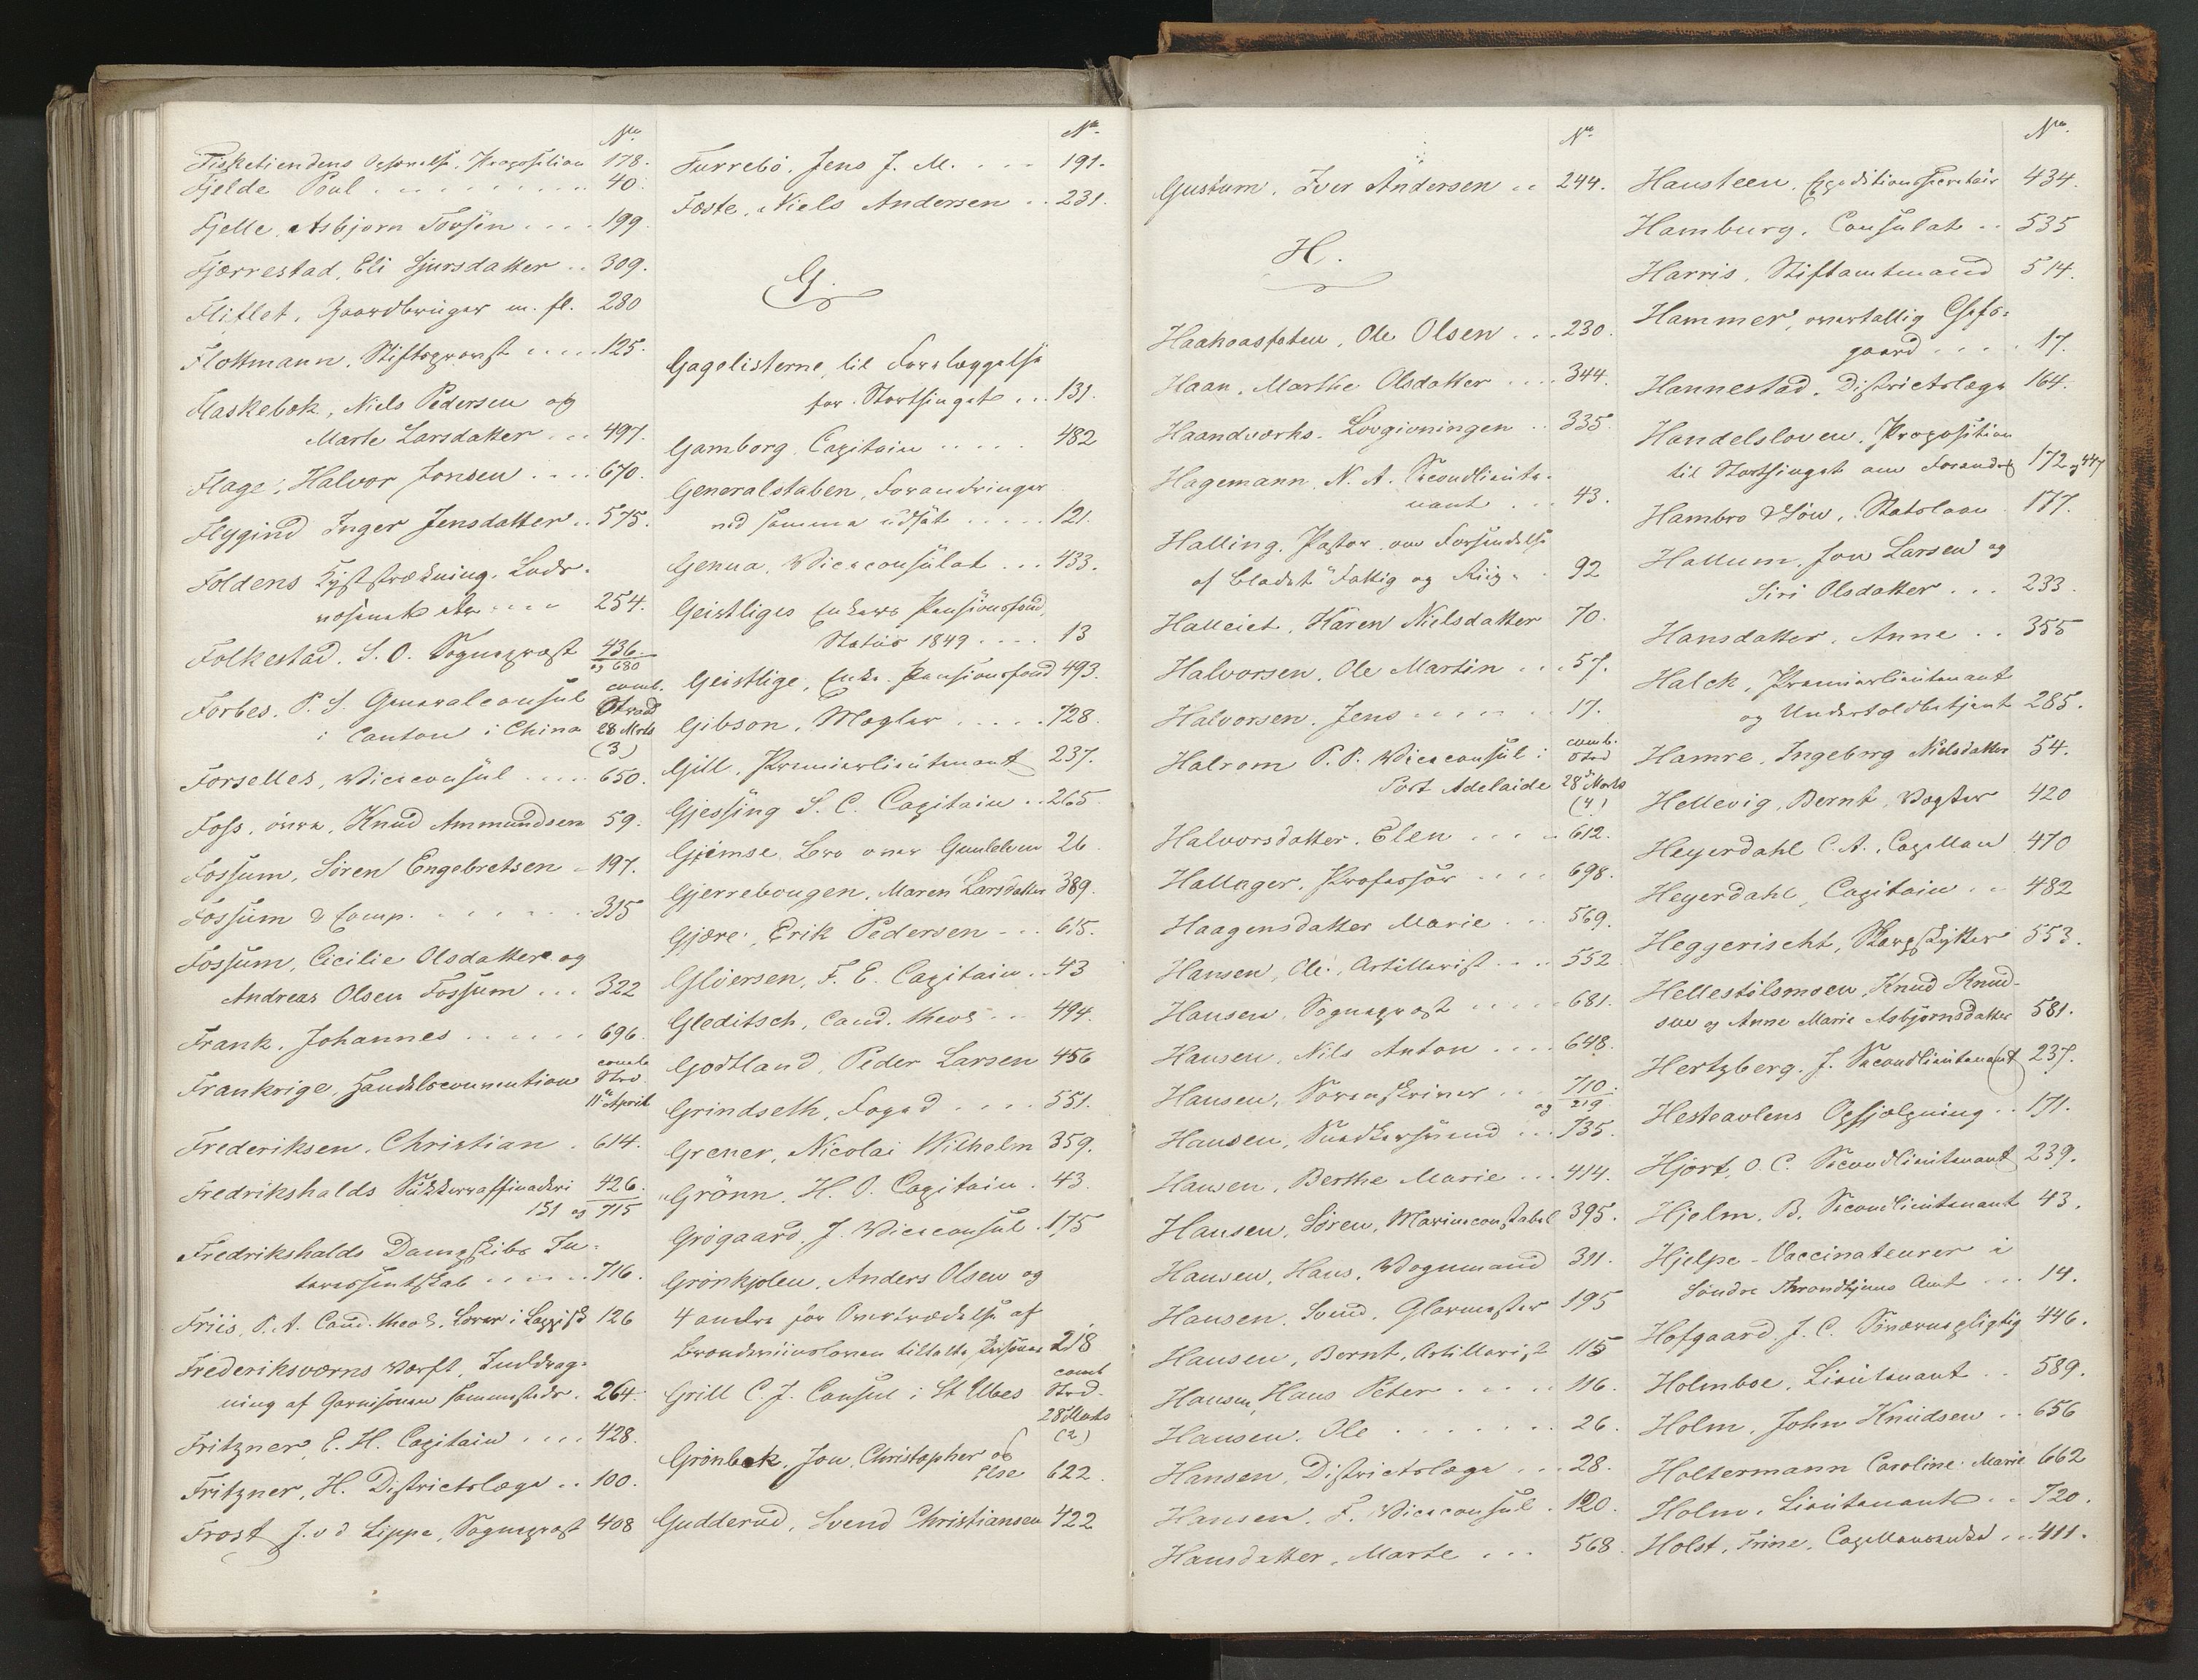 No.
Fisketiendens Ophævelse, Proposition 178.
Fjelde Poul . . . . . . . . . . 40.
Fjelle, Asbjørn Torsen . . . . 199
Fjærrestad, Eli Sjursdatter . . 309.
Flitlet, Gaardbruger m. fl. 280
Flottmann, Stiftsprovst . . . . 125.
Flaskebek, Niels Pedersen og
Marte Larsdatter . . . 497.
Flage, Halvor Jonsen . . . . 670.
Flygind Inger Jensdatter . . 575.
Foldens Kyststrækning, Lods-
væsenet etc . . . . 254.
Folkestad. S. O. Sognepræst 436
og 680
Forbes. P. S. Generalconsul comb.
Strd
i Canton i China 28 Marts
(3)
Forselles, Viceconsul . . . . 650.
Foss, øvre, Knud Ammundsen 59.
Fossum, Sören Engebretsen . 197.
Fossum & Comp. . . . . . . 315
Fossum, Cicilie Olsdatter og
Andreas Olsen Fossum . . . 322
Frank, Johannes . . . . . . 696
Frankrige, Handelsconvention comb.
Strd.
11te April
Frederiksen, Christian . 614.
Fredrikshalds Sukkerraffinaderi 426.
151 og 715
Fredrikshalds Dampskibs In-
teressentskab . . . . . . 716.
Friis, P. A. Cand. theol. Lærer i Lappisk 126
Frederiksværns Værft, Inddrag-
ning af Garnisonen sammesteds . 264.
Fritzner, E. H. Capitain . . . . 428.
Fritzner, H. Districtslæge . . 100.
Frost J. v d Lippe, Sognepræst 408
No.
Furrebö, Jens J. M. . . . . 191.
Föste, Niels Andersen . . 231.
G.
Gagelisterne, til Forelæggelse
for Storthinget . . . 131.
Gamborg, Capitain . . . . 482
Generalstaben, Forandringer
ved samme udsat . . . . . 121.
Genua, Viceconsulat . . . 433.
Geistliges Enkers Pensionsfond,
Status 1849 . . . . 13
Geistlige, Enke-Pensionsfond 493.
Gibson, Mægler . . . . . 728.
Gill, Premierlieutenant 237.
Gjessing S. C. Capitain . . 265.
Gjemse, Bro over Gunleluen 26.
Gjerrebougen, Maren Larsdatter 389.
Gjære, Erik Pedersen . . . 615.
Glöersen, F. E. Capitain . . 43
Gleditsch, Cand. theol . . 494.
Godtland, Peder Larsen 456
Grindseth, Foged . . . . 551.
Grener, Nicolai Wilhelm 359.
Grönn, H. O. Capitain . 43.
Grögaard, J. Viceconsul . 175
Grönkjolen, Anders Olsen og
4 andre for Overtrædelse af
Brændeviinsloven tiltalte Personer 218
Grill C. J. Consul i St Ubes comb
Strd.
28 Marts
(2)
Grönbek, Jon, Christopher og
Else 622.
Gudderud, Svend Christiansen 422
No.
Gustum, Iver Andersen . . 244.
H.
Haakaasfoten, Ole Olsen . . . 230.
Haan, Marthe Olsdatter . . . . 344.
Haandværks-Lovgivningen . . 335.
Hagemann, N. A. Secondlieute-
nant . . . 43.
Halling, Pastor, om Forsendelse
af Bladet "Fattig og Riig" . 92
Halleiet, Karen Nielsdatter 70.
Halvorsen, Ole Martin . . . 57.
Halvorsen, Jens . . . . . . 17.
Halrom P. P. Viceconsul i comb.
Strd
Port Adelaide 28 Marts
(4)
Halvorsdatter, Elen . . . . . 612.
Hallager, Professor . . . . 698.
Haagensdatter Marie . . . 569.
Hansen, Ole, Artillerist . . . . 552
Hansen, Sognepræst . . . . . 681.
Hansen, Nils Anton . . . . 648.
Hansen, Sorenskriver . . 710.
og 219
Hansen, Snedkersvend . . . 735.
Hansen, Berthe Marie . . . 414.
Hansen, Sören, Marineconstabel 395.
Hansen, Hans, Vognmand 311.
Hansen, Svend, Glarmester 195
Hansen, Bernt, Artillerist 115
Hansen, Hans Peter . . . . . 116.
Hansen, Ole . . . . . . . . 26.
Hansen, Districtslæge . . . 28.
Hansen, F. Viceconsul . 120.
Hansdatter, Marte . . . 568
No.
Hansteen, Expeditionssecretair 434.
Hamburg, Consulat . . 535
Harris, Stiftamtmand 514.
Hammer, overtallig Chefs-
gaard . . . . 17.
Hannestad, Districtslæge 164.
Handelsloven, Proposition
til Storthinget om Forandrg 172 og 447
Hambro & Sön, Statslaan . 177.
Hallum, Jon Larsen og
Siri Olsdatter . . . 233.
Hansdatter, Anne . . 355
Halck, Premierlieutenant
og Undertoldbetjent 285.
Hamre, Ingeborg Nielsdatter 54.
Hellevig, Bernt, Vægter 420
Heyerdahl C. A., Capellan 470
Heyerdahl, Capitain . . 482
Heggerischt, Skarpskytter 553.
Hellestölsmoen, Knud Knud-
sen og Anne Marie Asbjörnsdatter 581.
Hertzberg, J. Secondlieutenant 237.
Hesteavlens Ophjælpning . . 171.
Hjort, O. C. Secondlieutenant 239.
Hjelm, B. Secondlieutenant 43.
Hjelpe-Vaccinateurer i
Söndre Throndhjems Amt . . . 14.
Hofgaard, J. C. Seværnepligtig 446.
Holmboe, Lieutenant . . 589.
Holm, John Knudsen . . 656
Holtermann Caroline Marie 662
Holm, Lieutenant . . 720.
Holst, Trine, Capellansenke . . . 411.